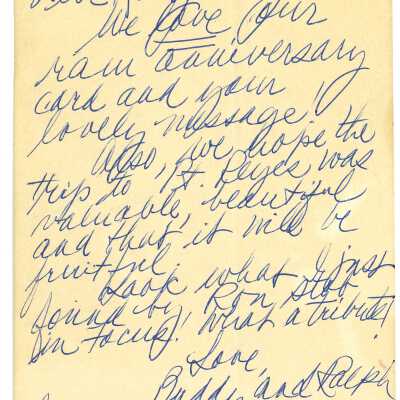 We love your
ram anniversary
card and your
lovely message!
Also, we hope the
trip to Pt. Reyes was
valuable, beautiful
and that it will be
fruitful.
Look what I just
found by Ron
in Focus! What a tribute!
Love,
Buddy and Ralph